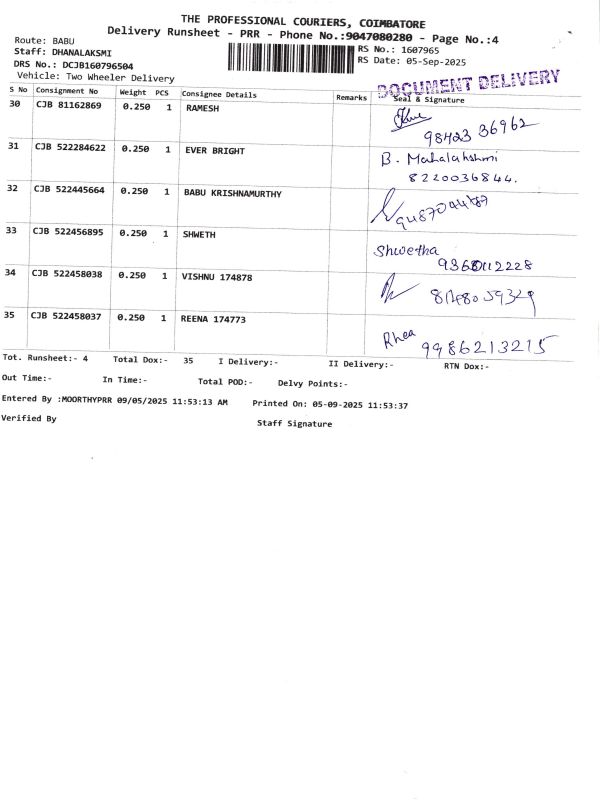 THE PROFESSIONAL COURIERS, COIMBATORE
Delivery Runsheet - PRR - Phone No.:9047080280 - Page No.:4
Route: BABU
Staff: DHANALAKSMI
RS No.: 1607965
DRS No.: DCJB160796504
RS Date: 05-Sep-2025
Vehicle: Two Wheeler Delivery
DOCUMENT DELIVERY
S No Consignment No Weight PCS Consignee Details Remarks Seal & Signature
30 CJB 81162869 0.250 1 RAMESH
98423 36962
31 CJB 522284622 0.250 1 EVER BRIGHT B. Mahalakshmi
8220036844.
32 CJB 522445664 0.250 1 BABU KRISHNAMURTHY
33 CJB 522456895 0.250 1 SHWETH Shwetha
34 CJB 522458038 0.250 1 VISHNU 174878
35 CJB 522458037 0.250 1 REENA 174773 Rhea
9986213215
Tot. Runsheet:- 4 Total Dox:- 35 I Delivery:- II Delivery:- RTN Dox:-
Out Time:- In Time:- Total POD:- Delvy Points:-
Entered By :MOORTHYPRR 09/05/2025 11:53:13 AM Printed On: 05-09-2025 11:53:37
Verified By Staff Signature